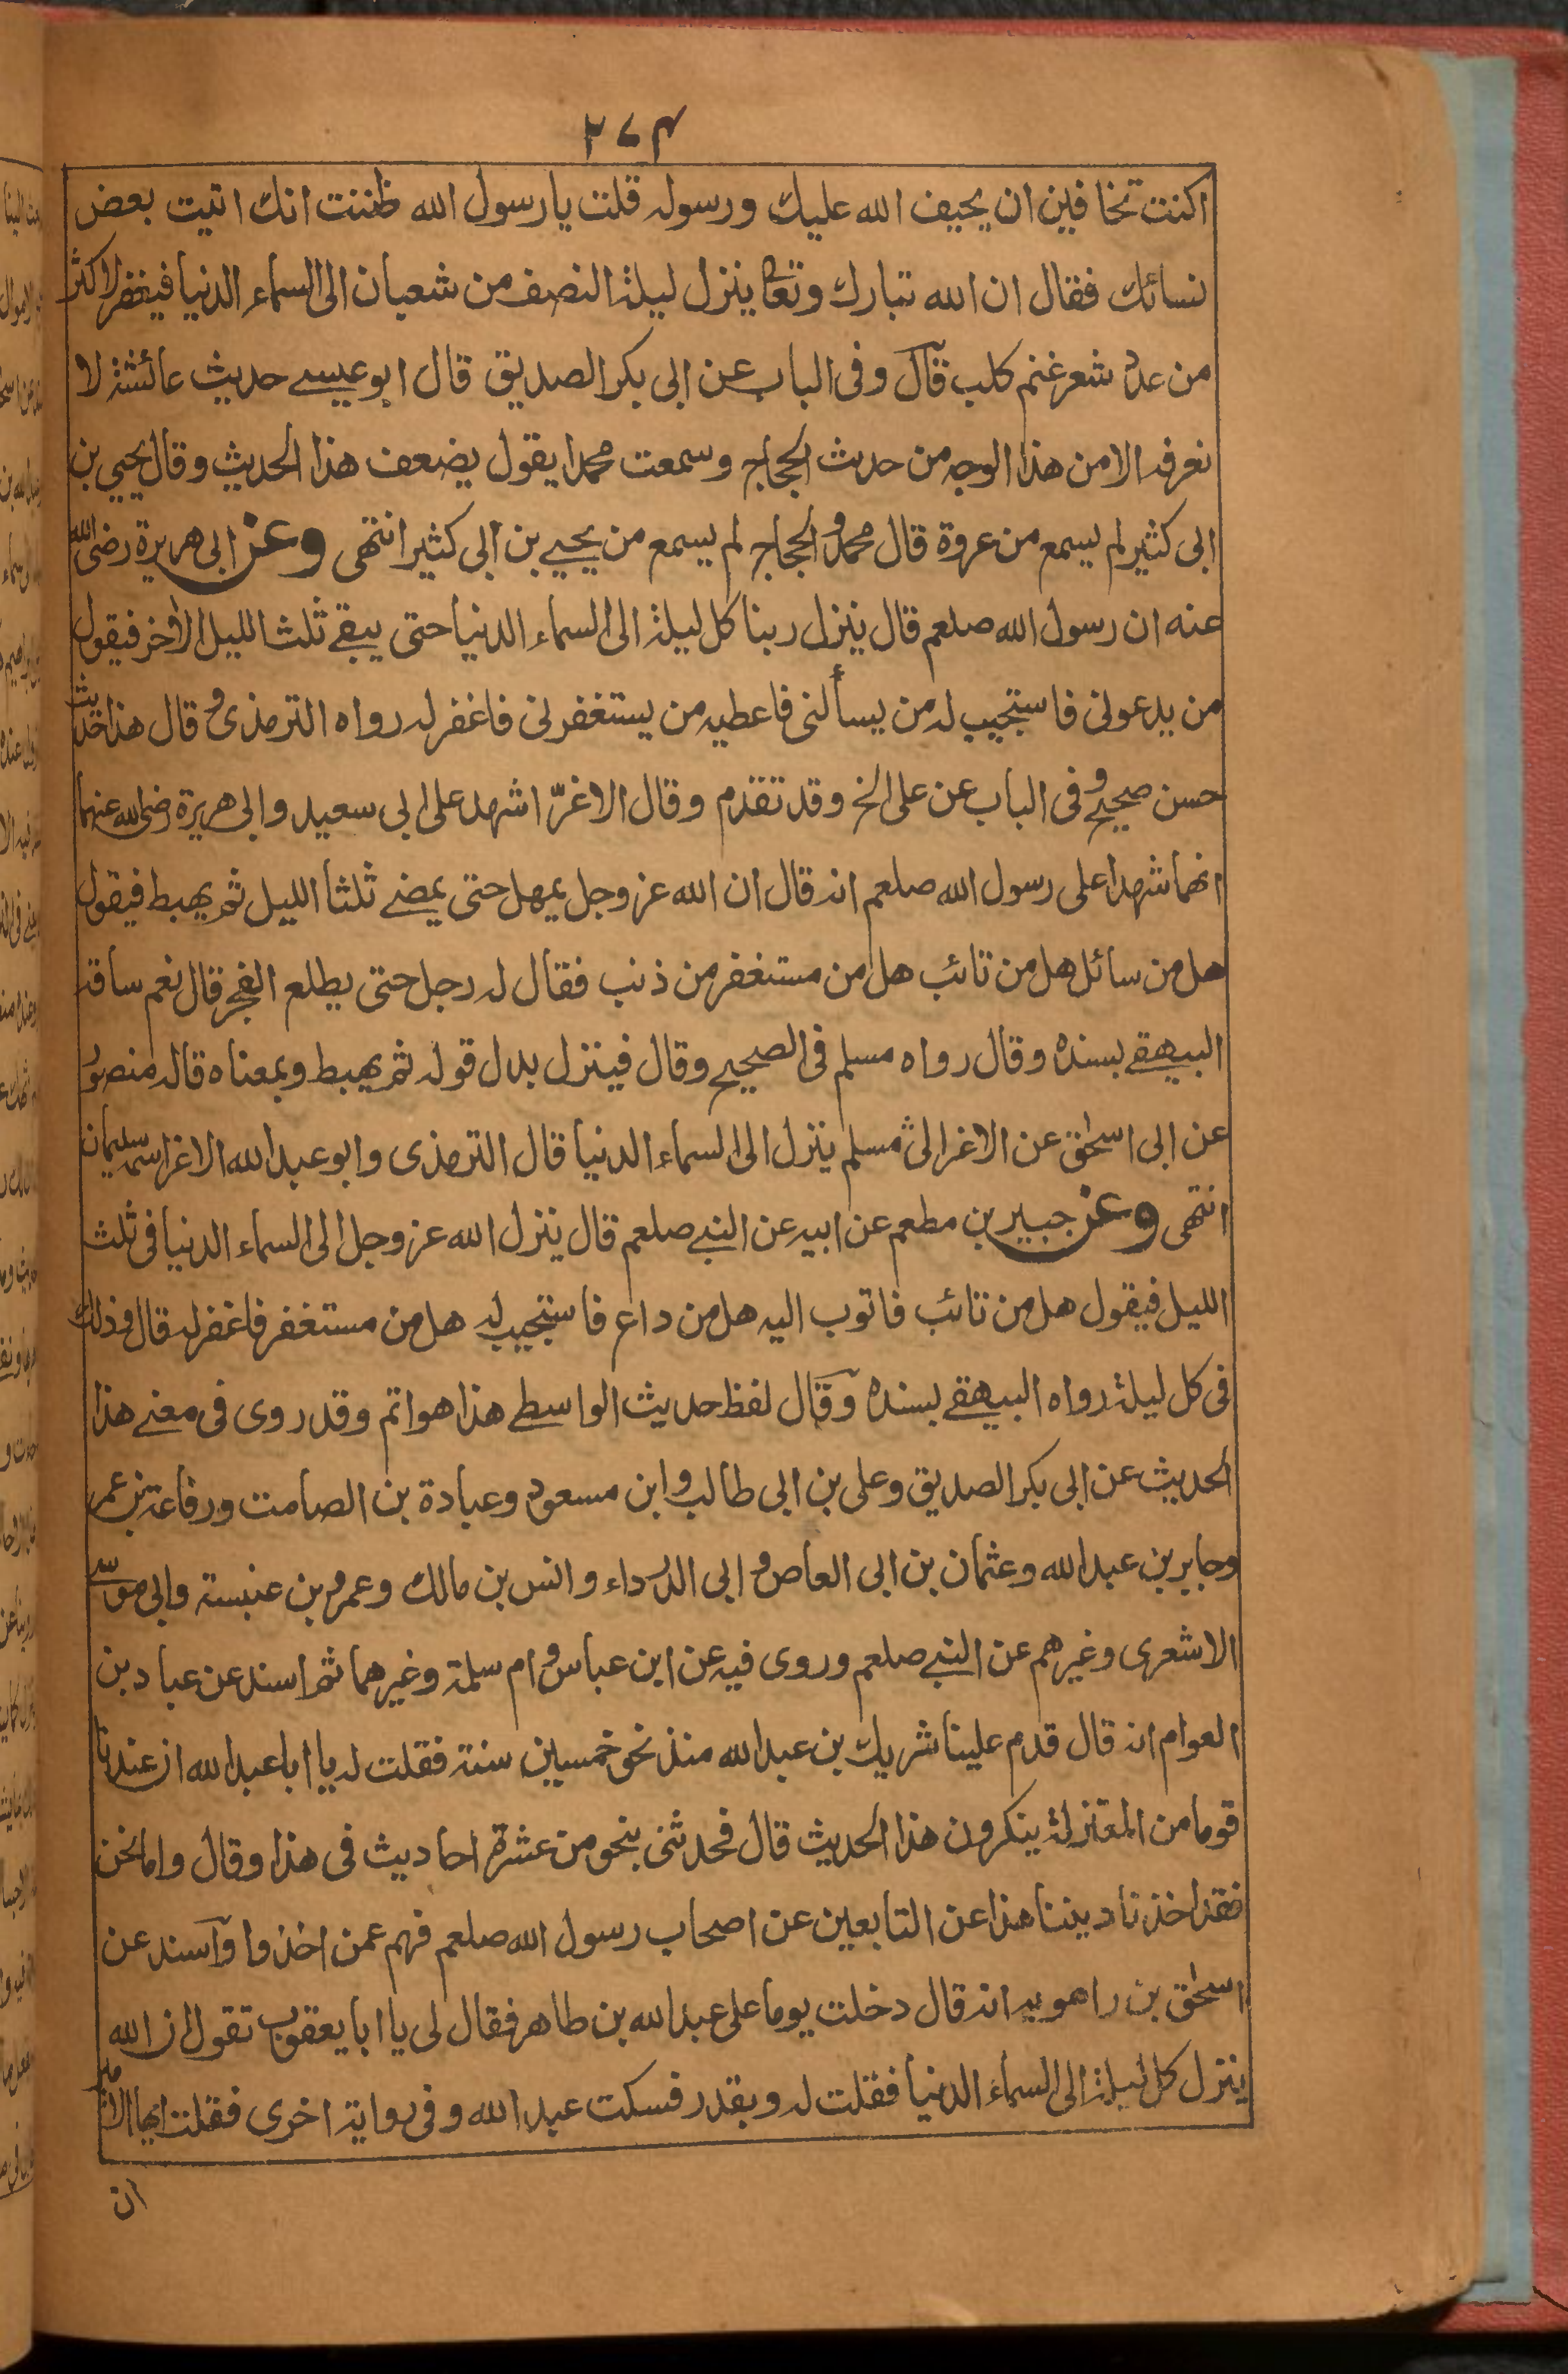 ٢٧٤
اكنت تخافين ان يحيف الله عليك ورسوله قلت يارسول الله ظننت انك اتيت بعض
نسائك فقال ان الله تبارك وتعا ينزل ليلة النصف من شعبان الى السماء الدنيا فيغفر لاكثر
من عدد شعر غنم كلب قال وفى الباب عن ابى بكر الصديق قال ابو عيسے حديث عائشة لا
نعرفه الا من هذا الوجه من حديث الحجاج وسمعت محمدا يقول يضعف هذا الحديث وقال يحيي بن
ابى كثير لم يسمع من عروة قال محمد والحجاج لم يسمع من يحيے بن ابى كثير انتهى وعن ابى هريرة رضى الله
عنه ان رسول الله صلعم قال ينزل ربنا كل ليلة الى السماء الدنيا حتى يبقے ثلث الليل الآخر فيقول
من يدعونى فاستجيب له من يسألنى فاعطيه من يستغفرنى فاغفر له رواه الترمذى وقال هذا حديث
حسن صحيح وفى الباب عن على الخ وقد تقدم وقال الاغرّ اشهد على ابى سعيد وابى هريرة رضى الله عنهما
انهما شهدا على رسول الله صلعم انه قال ان الله عز وجل يمهل حتى يمضے ثلثا الليل ثم يهبط فيقول
هل من سائل هل من تائب هل من مستغفر من ذنب فقال له رجل حتى يطلع الفجر قال نعم ساقه
البيهقے بسنده وقال رواه مسلم فى الصحيح وقال فينزل بدل قوله ثم يهبط وبمعناه قاله منصور
عن ابى اسحٰق عن الاغر ابى مسلم ينزل الى السماء الدنيا قال الترمذى وابو عبد الله الاغر اسمه سليمان
انتهى وعن جبير بن مطعم عن ابيه عن النبے صلعم قال ينزل الله عز وجل الى السماء الدنيا فى ثلث
الليل فيقول هل من تائب فاتوب اليه هل من داع فاستجيب له هل من مستغفر فاغفر له قال وذلك
فى كل ليلة رواه البيهقے بسنده وقال لفظ حديث الواسطے هذا هو اتم وقد روى فى معنے هذا
الحديث عن ابى بكر الصديق وعلى بن ابى طالب وابن مسعود وعبادة بن الصامت ورفاعة بن عمر
وجابر بن عبد الله وعثمان بن ابى العاص وابى الدرداء وانس بن مالك وعمرو بن عنبسة وابى موسے
الاشعرى وغيرهم عن النبے صلعم وروى فيه عن ابن عباس وام سلمة وغيرهما ثم اسند عن عباد بن
العوام انه قال قدم علينا شريك بن عبد الله منذ نحو خمسين سنة فقلت له يا ابا عبد الله ان عندنا
قوما من المعتزلة ينكرون هذا الحديث قال فحدثنى بنحو من عشرة احاديث فى هذا وقال واما نحن
فقد اخذنا ديننا هذا عن التابعين عن اصحاب رسول الله صلعم فهم عمن اخذوا وآسند عن
اسحٰق بن راهويه انه قال دخلت يوما على عبد الله بن طاهر فقال لى يا ابا يعقوب تقول ان الله
ينزل كل ليلة الى السماء الدنيا فقلت له ويقدر فسكت عبد الله وفى رواية اخرى فقلت ايها الامير
ان